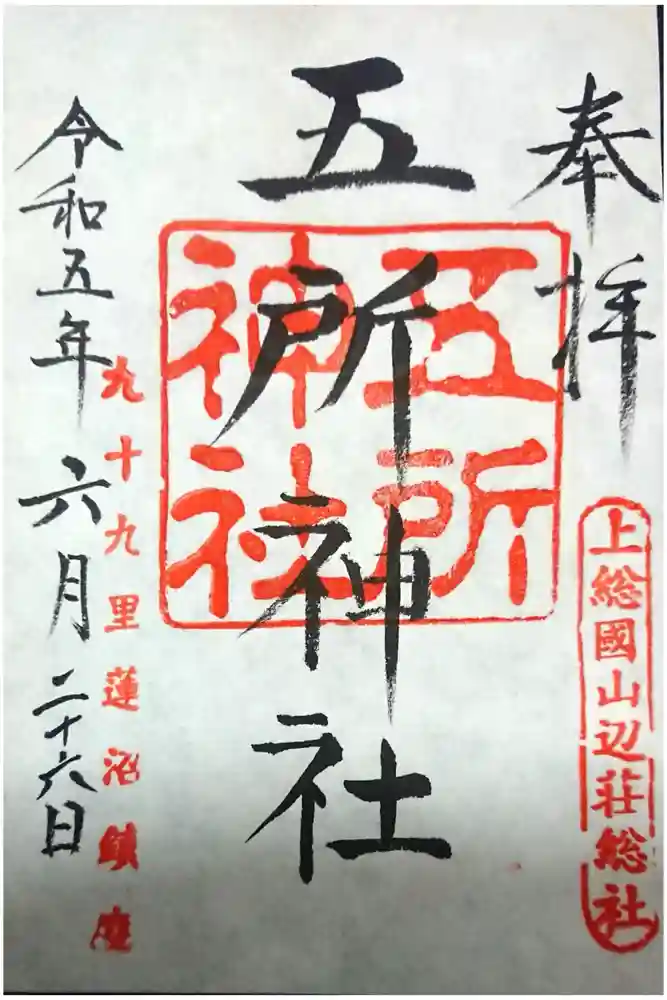 奉拝
上総國山辺荘総社
五所神社
五所
神社
九十九里蓮沼鎮座
令和五年六月二十六日